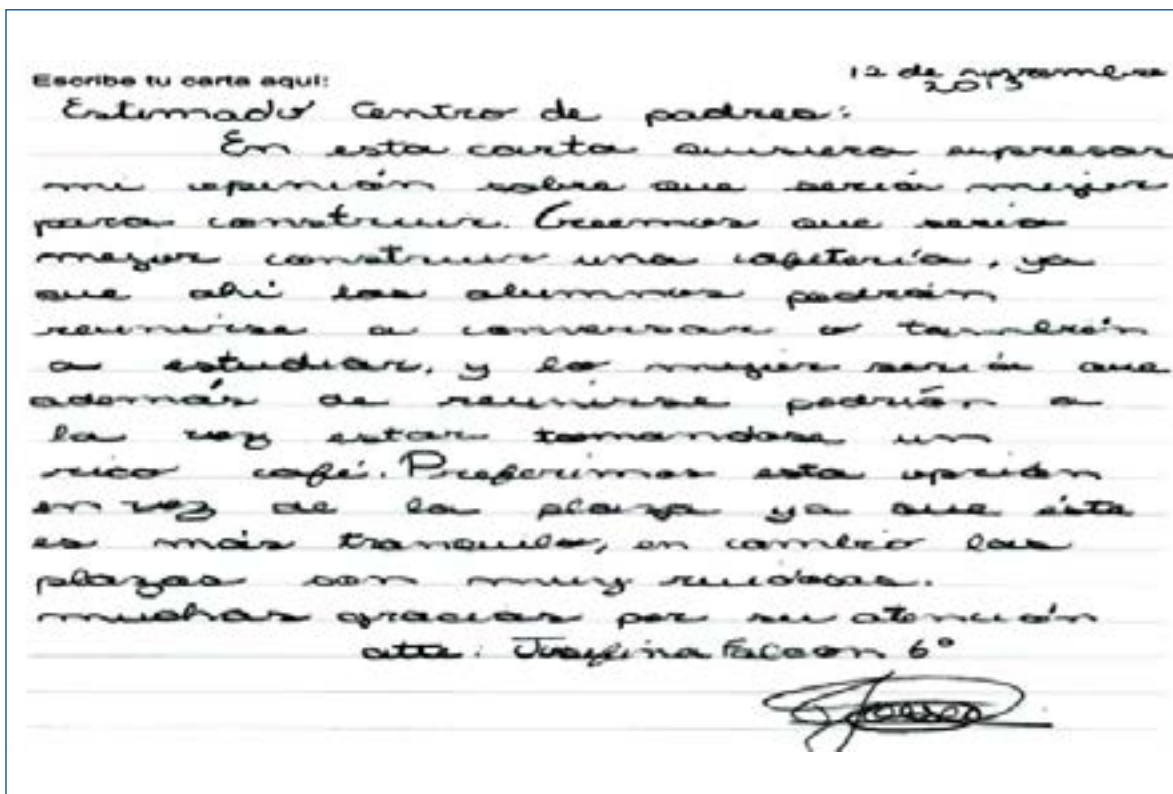 Escribe tu carta aquí:
12 de noviembre
2013
Estimado Centro de padres:
En esta carta quisiera expresar
mi opinión sobre que sería mejor
para construir. Creemos que sería
mejor construir una cafetería, ya
que ahí los alumnos podrán
reunirse a conversar o también
a estudiar, y lo mejor sería que
además de reunirse podrían a
la vez estar tomandose un
rico café. Preferimos esta opción
en vez de la plaza ya que éste
es más tranquilo, en cambio las
plazas son muy ruidosas.
muchas gracias por su atención
atte: 6°